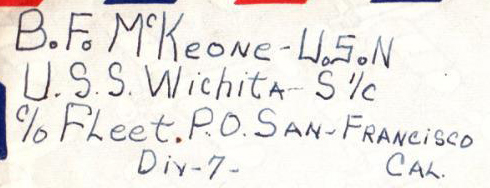 B.F. McKeone-U.S.N
U.S.S. Wichita- S 1/c
c/o Fleet. P.O. San-Francisco
Div-7- Cal.